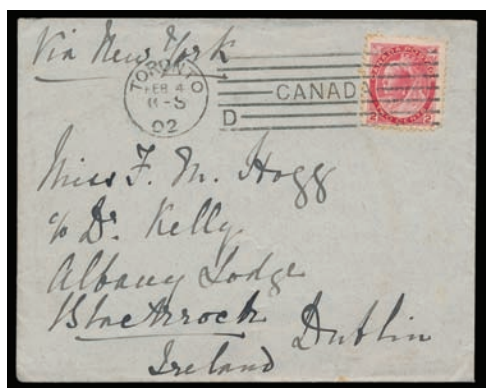 Via New York
TORONTO
FEB 4
02
D CANADA
CANADA POSTAGE
2 2
Miss F. M. Hogg
c/o Dr. Kelly
Albany Lodge
Blackrock Dublin
Ireland